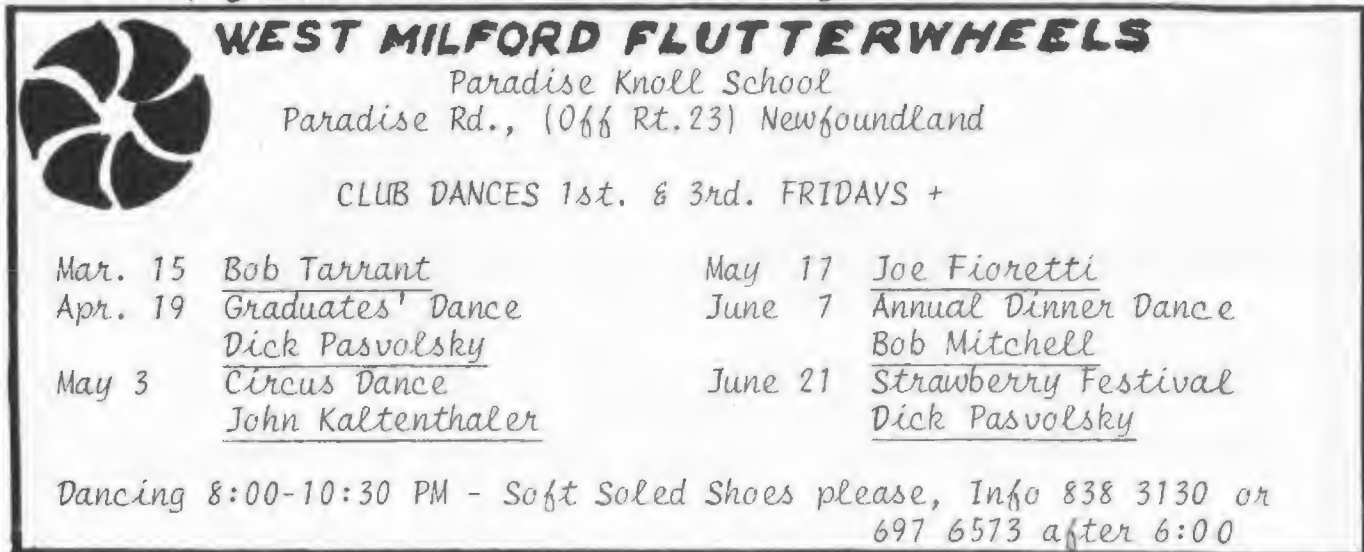 WEST MILFORD FLUTTERWHEELS
Paradise Knoll School
Paradise Rd., (Off Rt.23) Newfoundland
CLUB DANCES 1st. & 3rd. FRIDAYS +
Mar. 15 Bob Tarrant
Apr. 19 Graduates' Dance
Dick Pasvolsky
May 3 Circus Dance
John Kaltenthaler
May 17 Joe Fioretti
June 7 Annual Dinner Dance
Bob Mitchell
June 21 Strawberry Festival
Dick Pasvolsky
Dancing 8:00-10:30 PM - Soft Soled Shoes please, Info 838 3130 or
697 6573 after 6:00